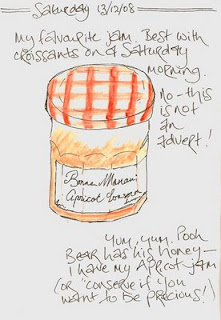 Saturday 13/12/08
My favourite jam. Best with
croissants on a Satturday
morning.
No - this
is not
an
advert!
Bonne Maman
Apricot Conserve
Yum, yum. Pooh
Bear has his honey -
I have my Apricot jam
(or "conserve if you
want to be precious!)